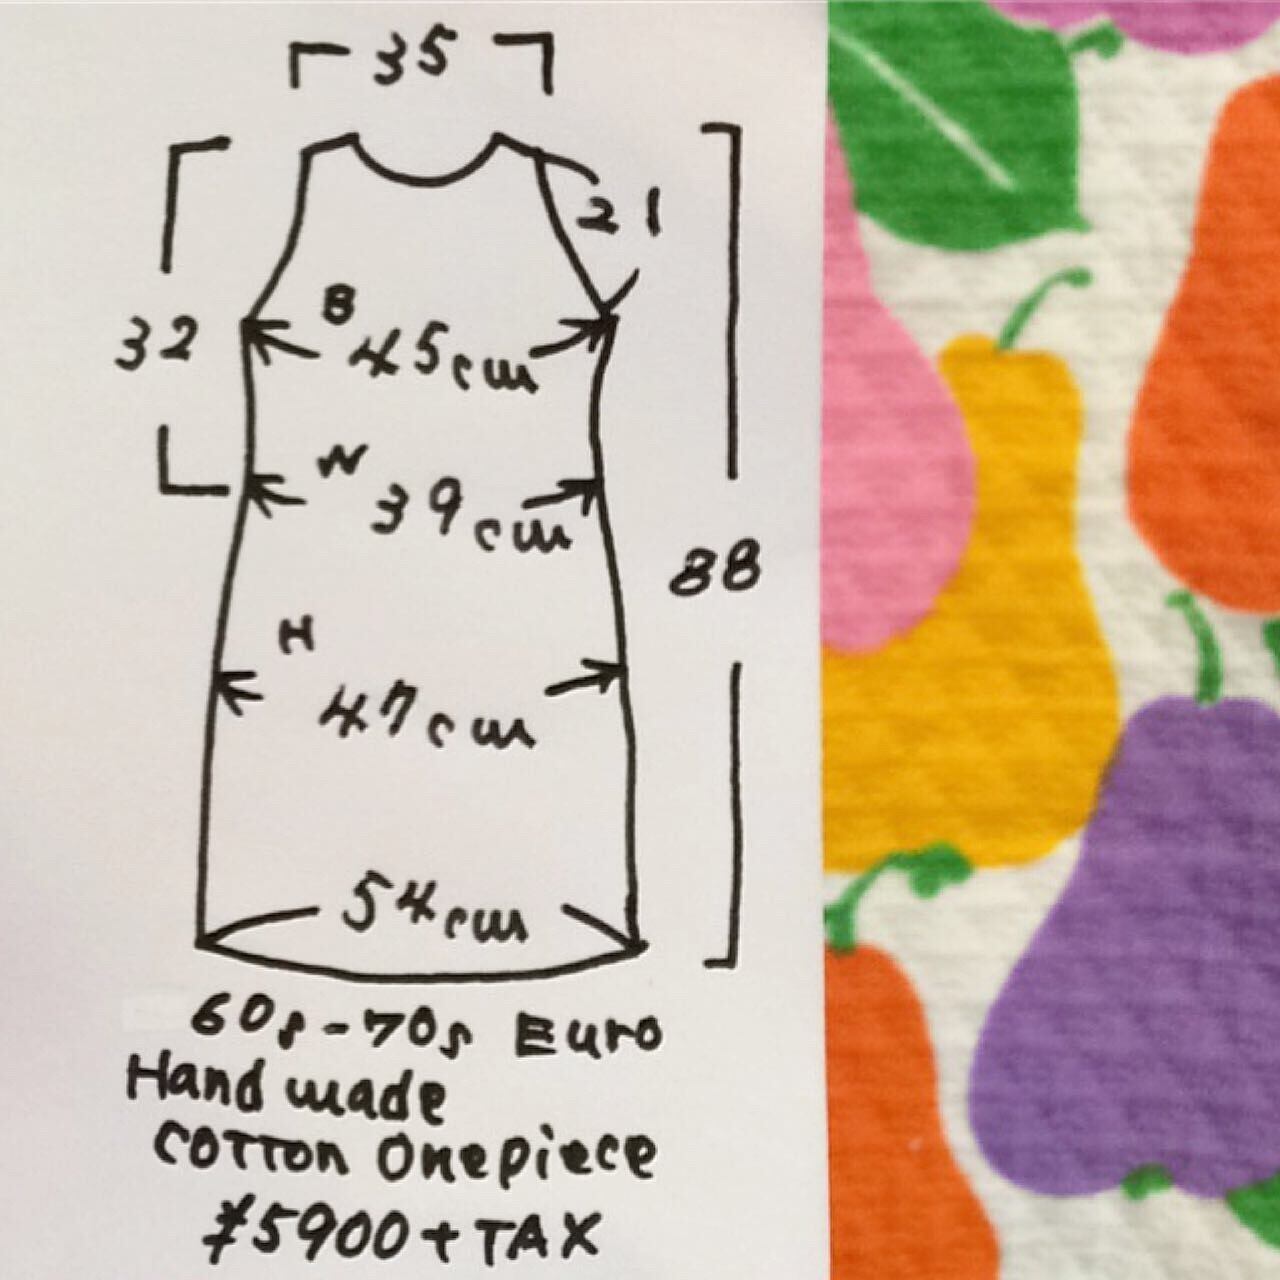 35
21
32
B
45cm
W
39cm
88
H
47cm
54cm
60s-70s Euro
Hand made
COTTON Onepiece
¥5900+TAX